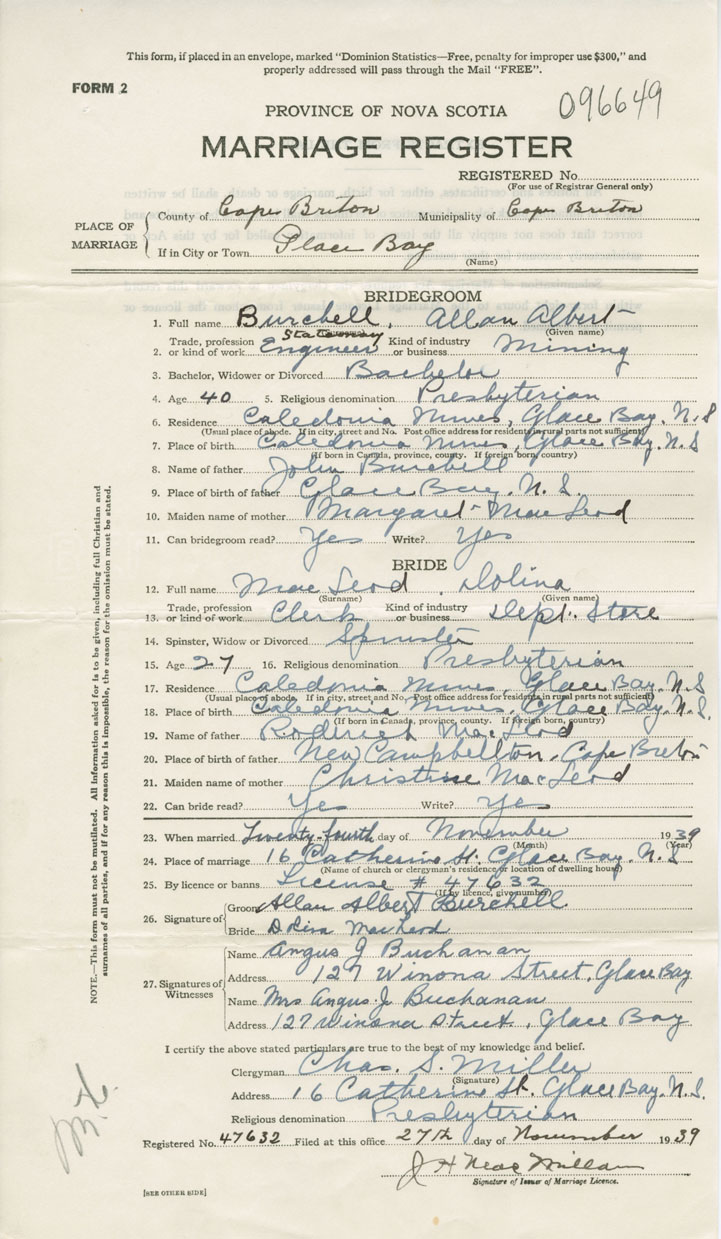 This form, if placed in an envelope, marked "Dominion Statistics—Free, penalty for improper use $300," and
properly addressed will pass through the Mail "FREE".
FORM 2
096649
PROVINCE OF NOVA SCOTIA
MARRIAGE REGISTER
REGISTERED No.
(For use of Registrar General only)
PLACE OF MARRIAGE
County of Cape Briton Municipality of Cape Briton
If in City or Town Glace Bay
(Name)
BRIDEGROOM
1. Full name Burchell, Allan Albert
(Given name)
2. Trade, profession or kind of work Stationary Engineer Kind of industry or business Mining
3. Bachelor, Widower or Divorced Bachelor
4. Age 40 5. Religious denomination Presbyterian
6. Residence Caledonia Mines, Glace Bay, N.S
(Usual place of abode. If in city, street and No. Post office address for residents in rural parts not sufficient)
7. Place of birth Caledonia Mines, Glace Bay. N.S
(If born in Canada, province, county. If foreign born, country)
8. Name of father John Burchell
9. Place of birth of father Glace Bay. N.S.
10. Maiden name of mother Margaret MacLeod
11. Can bridegroom read? Yes Write? Yes
BRIDE
12. Full name MacLeod, Dolina
(Surname) (Given name)
13. Trade, profession or kind of work Clerk Kind of industry or business Dept. Store
14. Spinster, Widow or Divorced Spinster
15. Age 27 16. Religious denomination Presbyterian
17. Residence Caledonia Mines, Glace Bay. N.S
(Usual place of abode. If in city, street and No. Post office address for residents in rural parts not sufficient)
18. Place of birth Caledonia Mines, Glace Bay. N.S.
(If born in Canada, province, county. If foreign born, country)
19. Name of father Roderick MacLeod
20. Place of birth of father New Campbellton, Cape Breton
21. Maiden name of mother Christine MacLeod
22. Can bride read? Yes Write? Yes
23. When married Twenty-fourth day of November 1939
(Month) (Year)
24. Place of marriage 16 Catherine St. Glace Bay. N.S
(Name of church or clergyman's residence, or location of dwelling house)
25. By licence or banns License # 47632
(If by licence, give number)
26. Signature of
Groom Allan Albert Burchell
Bride Dolina MacLeod
27. Signatures of Witnesses
Name Angus J Buchanan
Address 127 Winona Street, Glace Bay
Name Mrs Angus. J. Buchanan
Address 127 Winona Street, Glace Bay
I certify the above stated particulars are true to the best of my knowledge and belief.
Clergyman Chas. S. Miller
(Signature)
Address 16 Catherine St. Glace Bay. N.S.
Religious denomination Presbyterian
Registered No. 47632 Filed at this office 27th day of November 1939
J H MacMillan
Signature of Issuer of Marriage Licence.
[SEE OTHER SIDE]
NOTE.—This form must not be mutilated. All information asked for is to be given, including full Christian and
surnames of all parties, and if for any reason this is impossible, the reason for the omission must be stated.